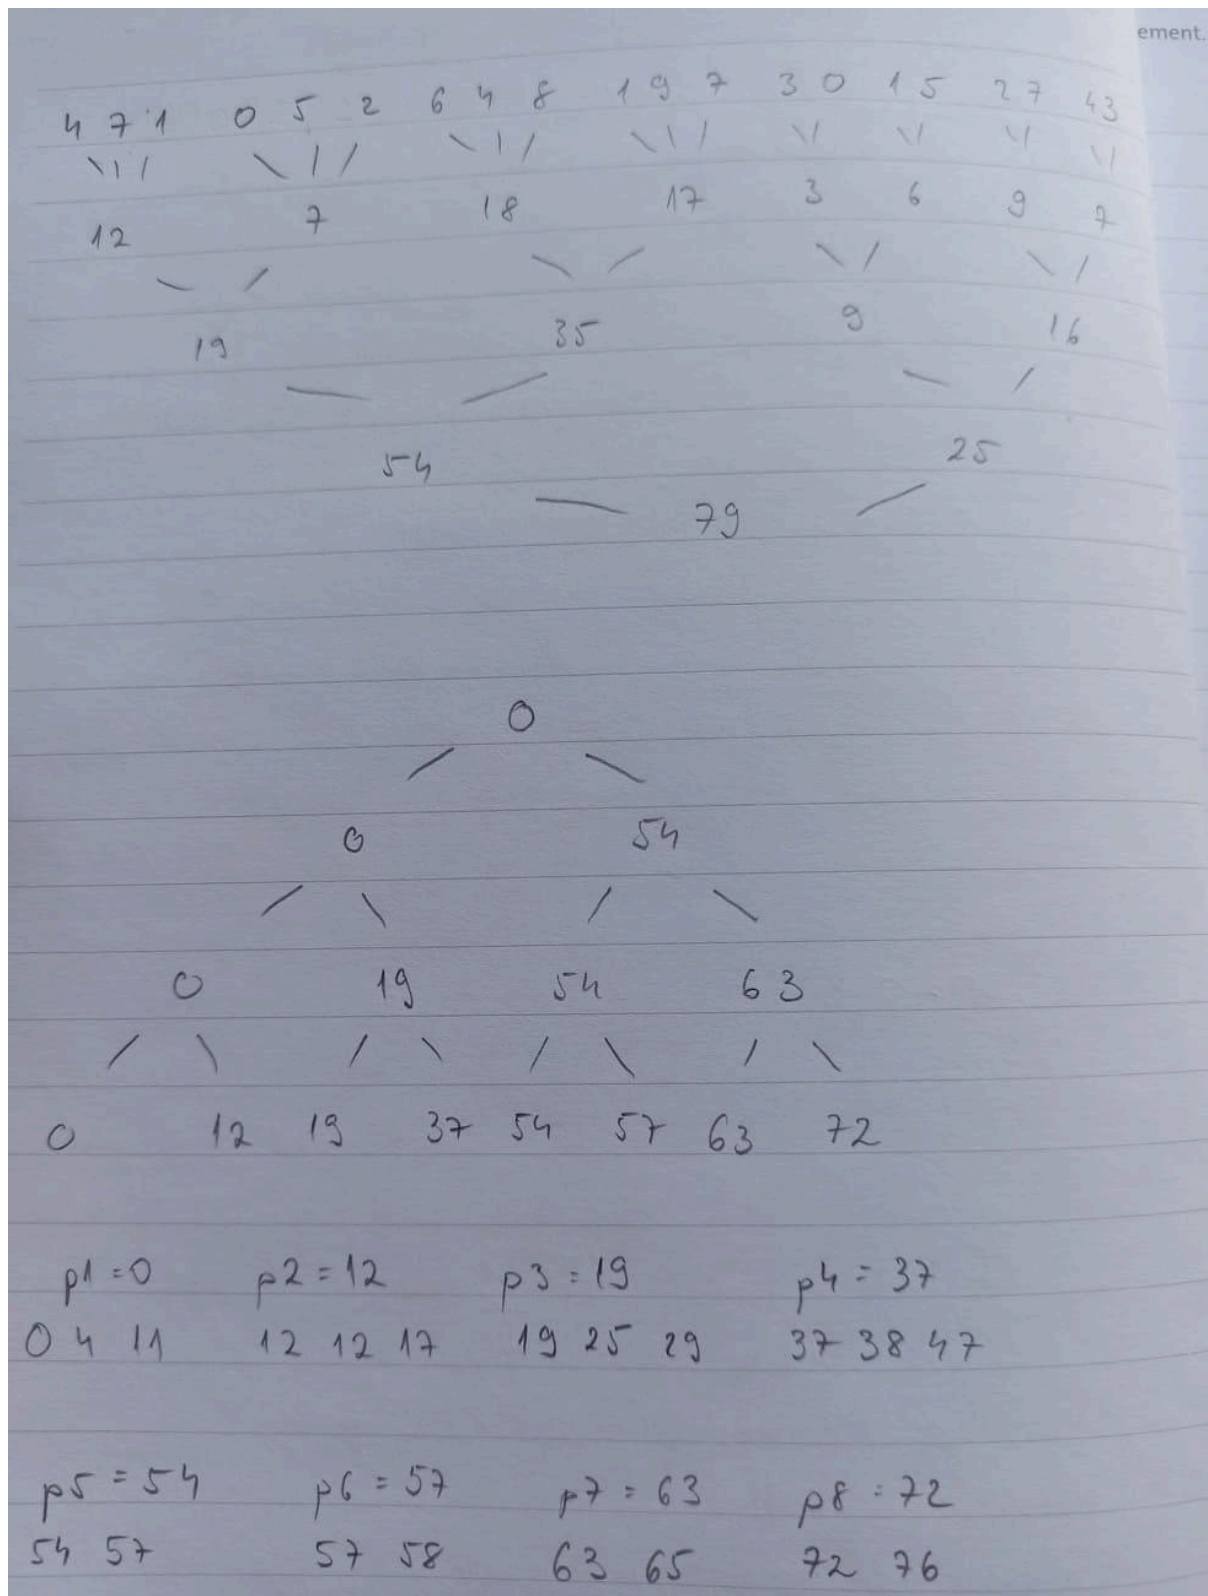 ement.
4 7 1 0 5 2 6 4 8 1 9 7 3 0 1 5 2 7 4 3
12 7 18 17 3 6 9 7
19 35 9 16
54 25
79
0
0 54
0 19 54 63
0 12 19 37 54 57 63 72
p1 = 0 p2 = 12 p3 = 19 p4 = 37
0 4 11 12 12 17 19 25 29 37 38 47
p5 = 54 p6 = 57 p7 = 63 p8 = 72
54 57 57 58 63 65 72 76